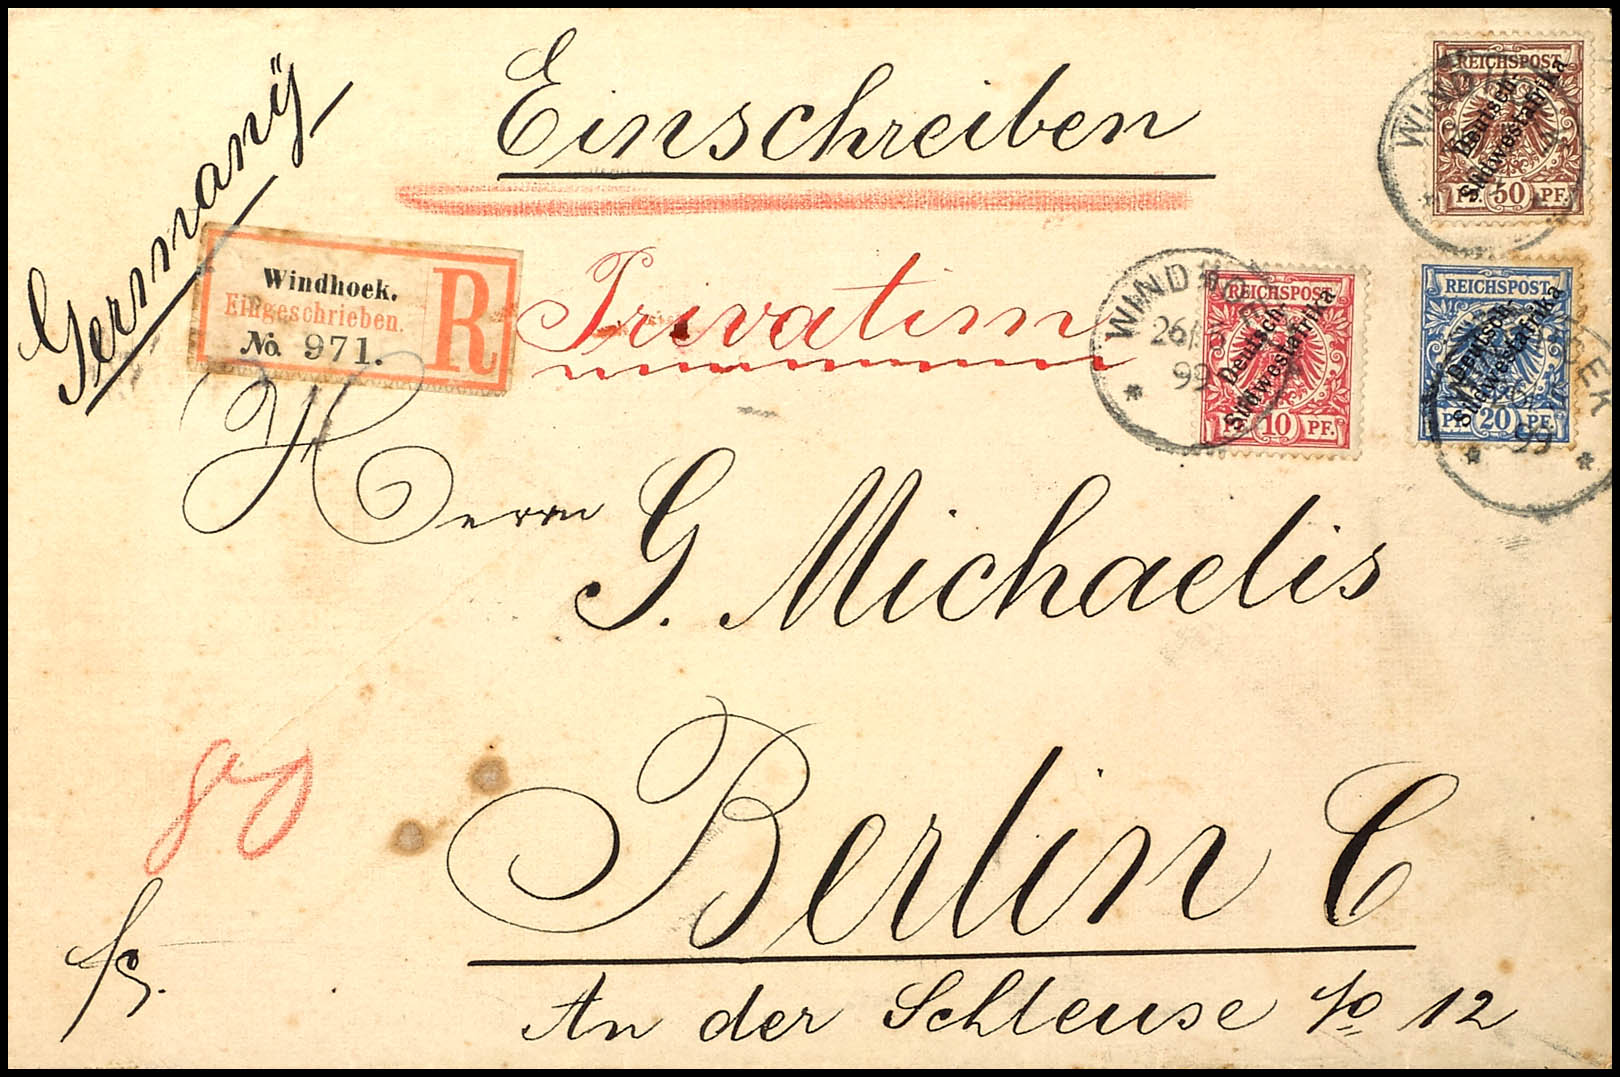 Einschreiben
Germany
Windhoek.
Eingeschrieben.
No. 971.
R
Privatim
REICHSPOST
Deutsch-
Südwestafrika
PF. 50 PF.
REICHSPOST
Deutsch-
Südwestafrika
PF. 10 PF.
REICHSPOST
Deutsch-
Südwestafrika
PF. 20 PF.
WINDHOEK
26/
99
99
Herrn
G. Michaelis
80
Berlin C
An der Schleuse No 12